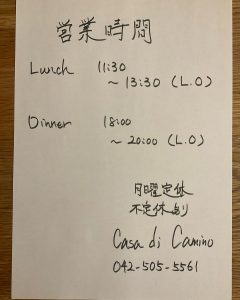 営業時間
Lunch 11:30
～ 13:30 (L.O)
Dinner 18:00
～ 20:00 (L.O)
月曜定休
不定休あり
Casa di Camino
042-505-5561